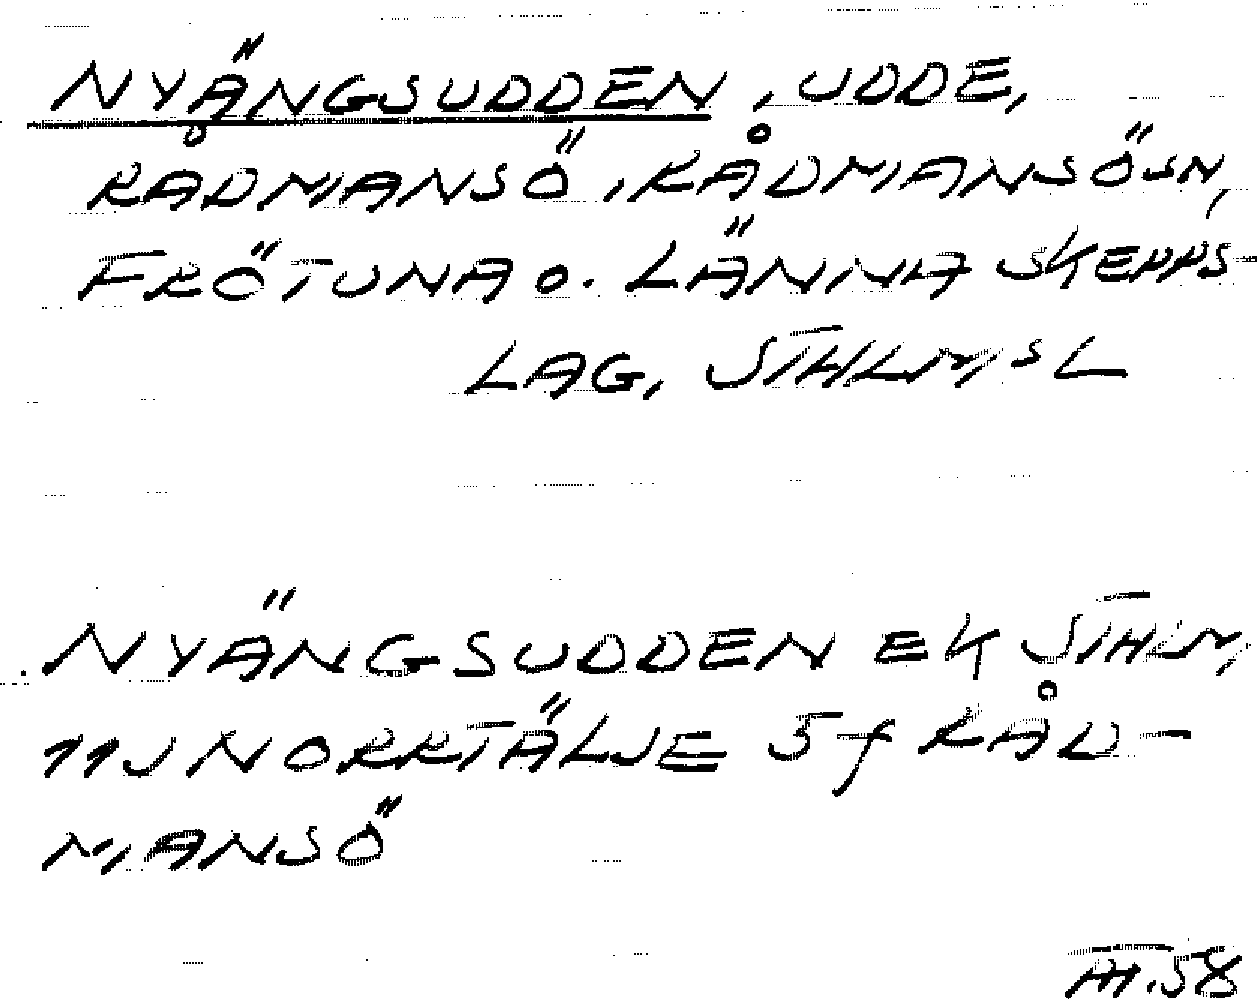 NYÄNGSUDDEN, UDDE,
RÅDMANSÖ, RÅDMANSÖ SN,
FRÖTUNA O. LÄNNA SKEPPS-
LAG, STHLMS L
NYÄNGSUDDEN EK STHLM,
11J NORRTÄLJE 5f RÅD-
MANSÖ